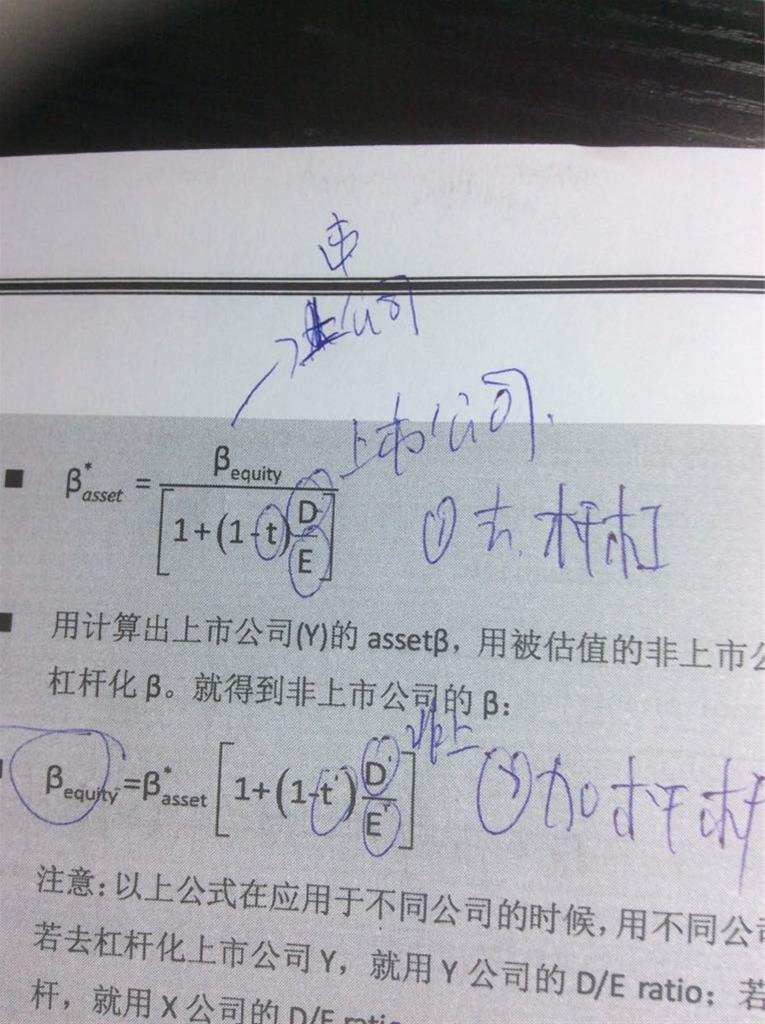 市
公司
上市公司.
■ β*asset = βequity / [1+(1-t)D/E]
① 去杠杆
■ 用计算出上市公司(Y)的 assetβ，用被估值的非上市公
杠杆化 β。就得到非上市公司的 β：
非上
βequity=β*asset [1+(1-t')D'/E']
② 加杠杆
注意：以上公式在应用于不同公司的时候，用不同公司
若去杠杆化上市公司 Y，就用 Y 公司的 D/E ratio；若
杆，就用 X 公司的 D/E ratio